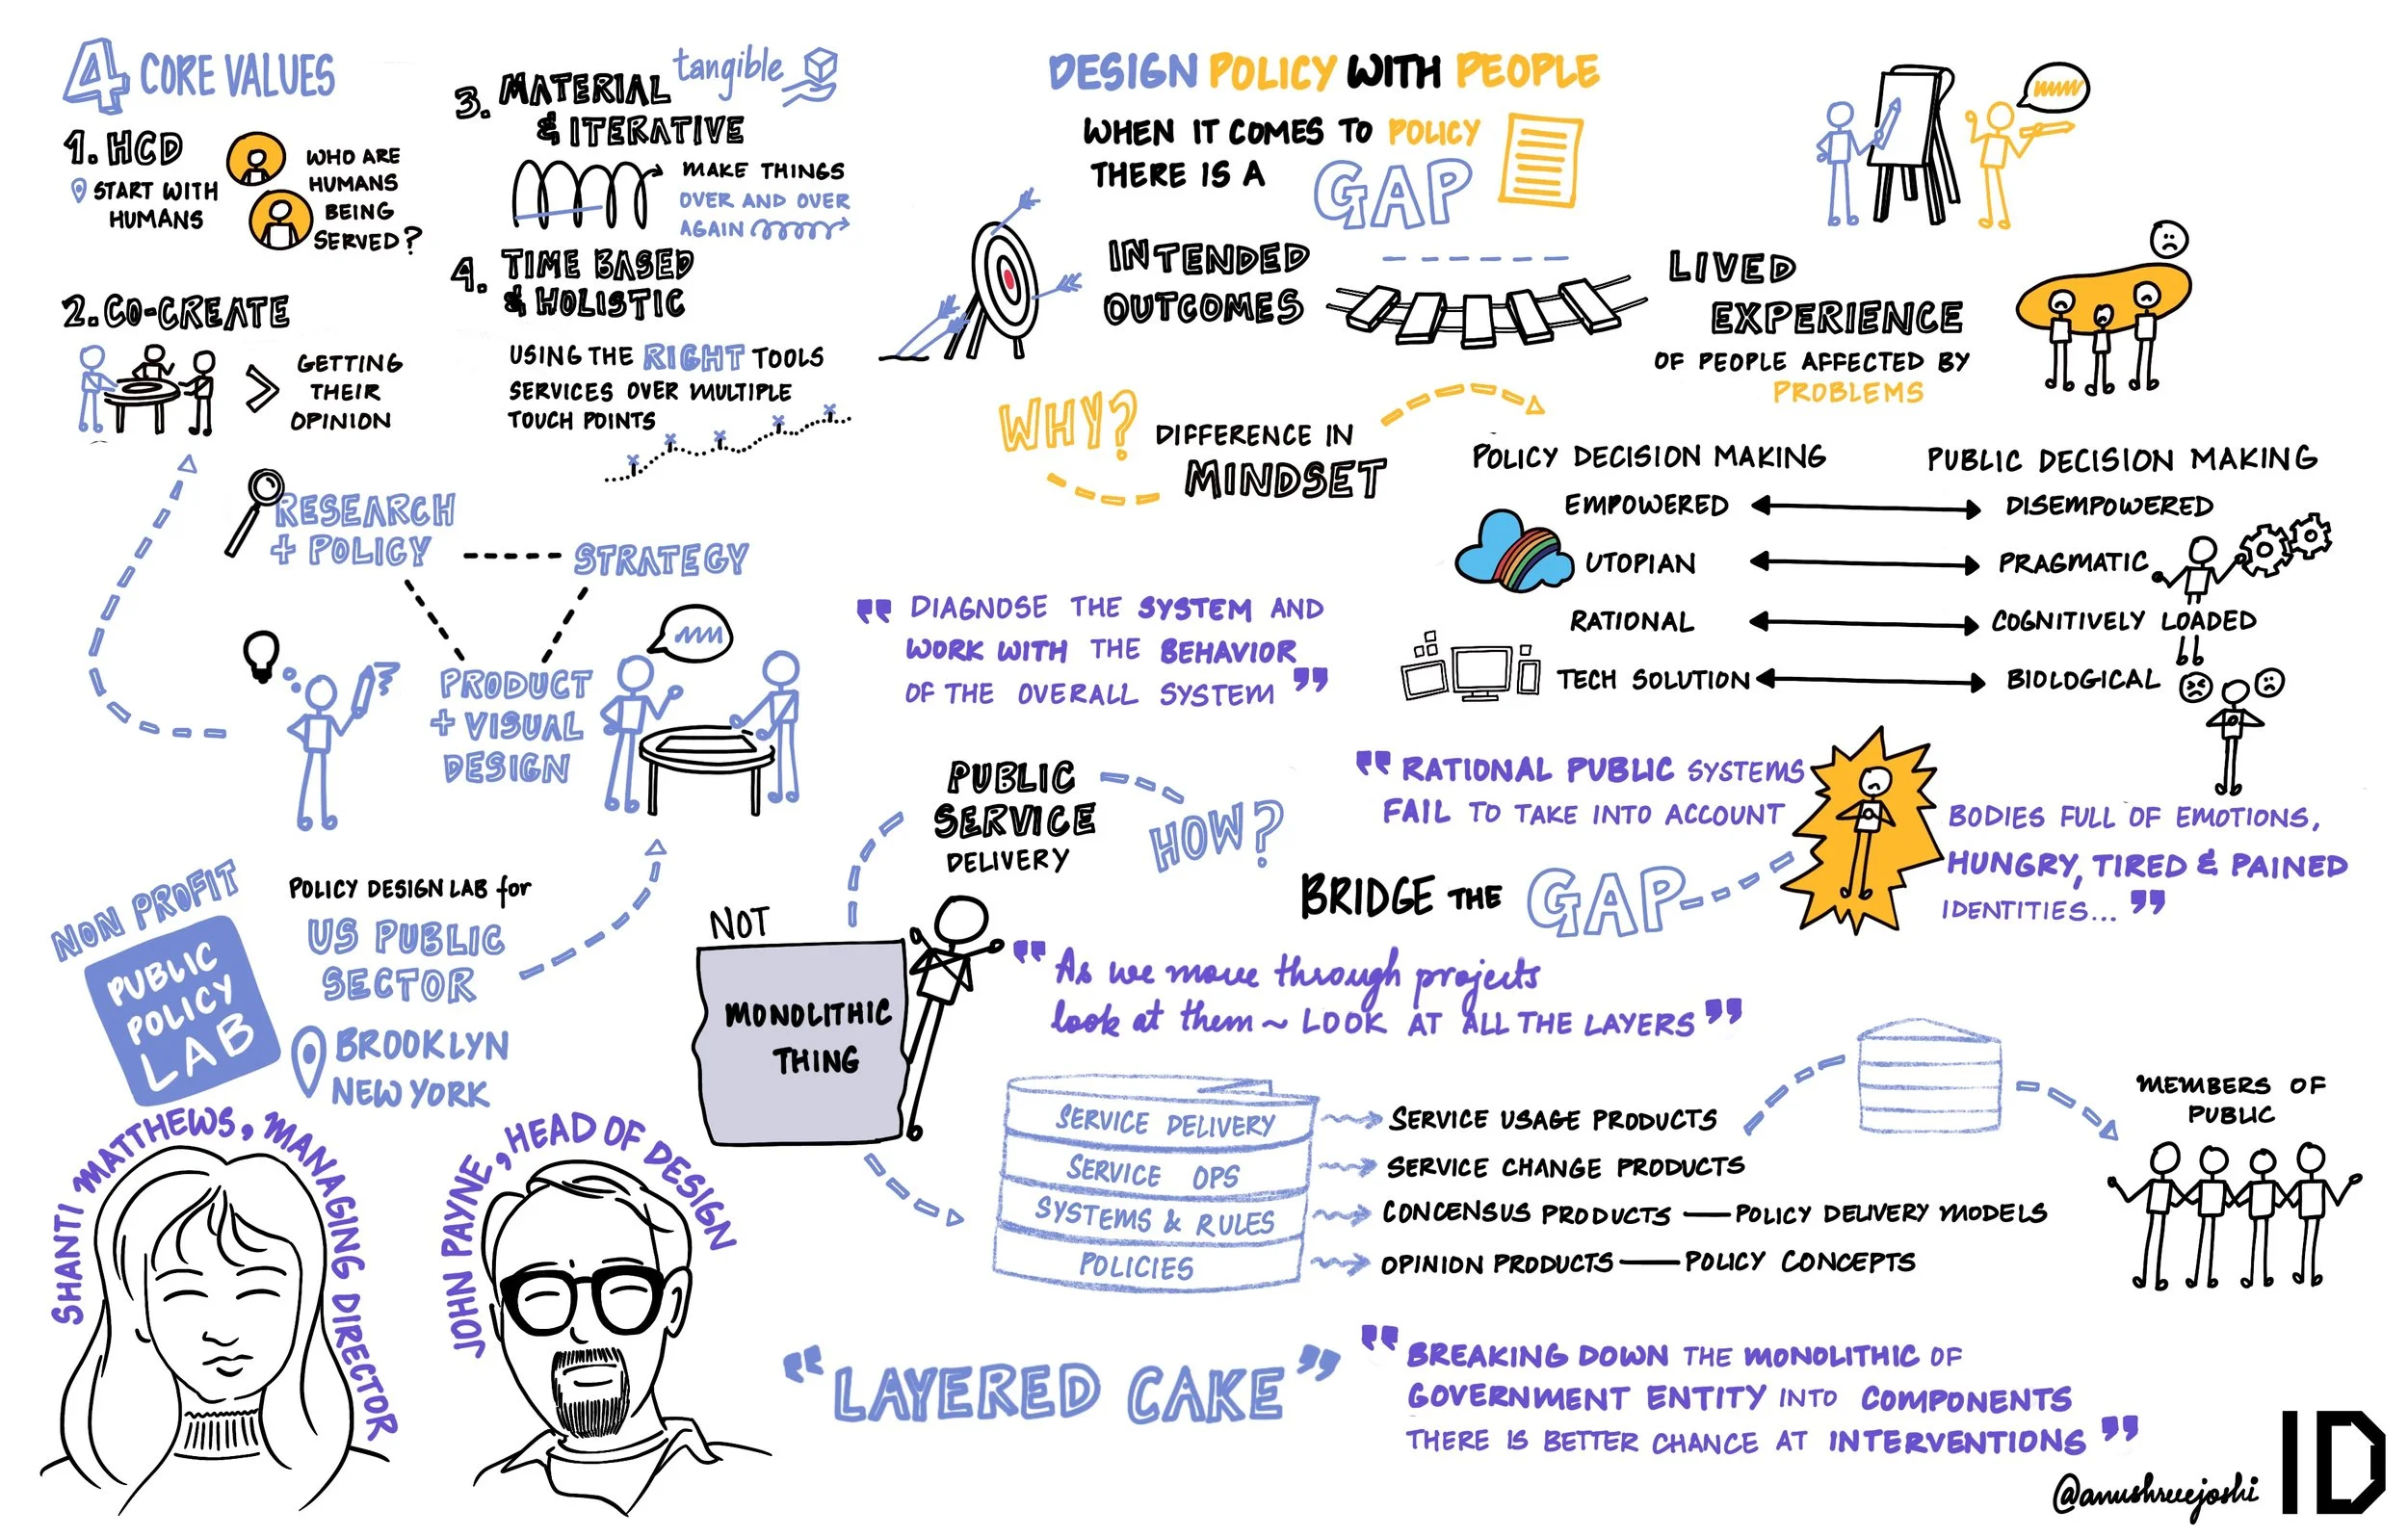 4 CORE VALUES
1. HCD
START WITH
HUMANS
WHO ARE
HUMANS
BEING
SERVED?
2. CO-CREATE
>
GETTING
THEIR
OPINION
3. MATERIAL
& ITERATIVE
tangible
MAKE THINGS
OVER AND OVER
AGAIN
4. TIME BASED
& HOLISTIC
USING THE RIGHT TOOLS
SERVICES OVER MULTIPLE
TOUCH POINTS
RESEARCH
+ POLICY
STRATEGY
PRODUCT
+ VISUAL
DESIGN
NON PROFIT
PUBLIC
POLICY
LAB
POLICY DESIGN LAB for
US PUBLIC
SECTOR
BROOKLYN
NEW YORK
SHANTI MATTHEWS, MANAGING DIRECTOR
JOHN PAYNE, HEAD OF DESIGN
DESIGN POLICY WITH PEOPLE
WHEN IT COMES TO POLICY
THERE IS A GAP
INTENDED
OUTCOMES
LIVED
EXPERIENCE
OF PEOPLE AFFECTED BY
PROBLEMS
WHY?
DIFFERENCE IN
MINDSET
POLICY DECISION MAKING PUBLIC DECISION MAKING
EMPOWERED DISEMPOWERED
UTOPIAN PRAGMATIC
RATIONAL COGNITIVELY LOADED
TECH SOLUTION BIOLOGICAL
"DIAGNOSE THE SYSTEM AND
WORK WITH THE BEHAVIOR
OF THE OVERALL SYSTEM"
"RATIONAL PUBLIC SYSTEMS
FAIL TO TAKE INTO ACCOUNT
BODIES FULL OF EMOTIONS,
HUNGRY, TIRED & PAINED
IDENTITIES..."
PUBLIC
SERVICE
DELIVERY
HOW?
BRIDGE THE GAP
NOT
MONOLITHIC
THING
"As we move through projects
look at them ~ LOOK AT ALL THE LAYERS"
SERVICE DELIVERY
SERVICE OPS
SYSTEMS & RULES
POLICIES
SERVICE USAGE PRODUCTS
SERVICE CHANGE PRODUCTS
CONCENSUS PRODUCTS — POLICY DELIVERY MODELS
OPINION PRODUCTS — POLICY CONCEPTS
MEMBERS OF
PUBLIC
"LAYERED CAKE"
"BREAKING DOWN THE MONOLITHIC OF
GOVERNMENT ENTITY INTO COMPONENTS
THERE IS BETTER CHANCE AT INTERVENTIONS"
@anushreejoshi
ID